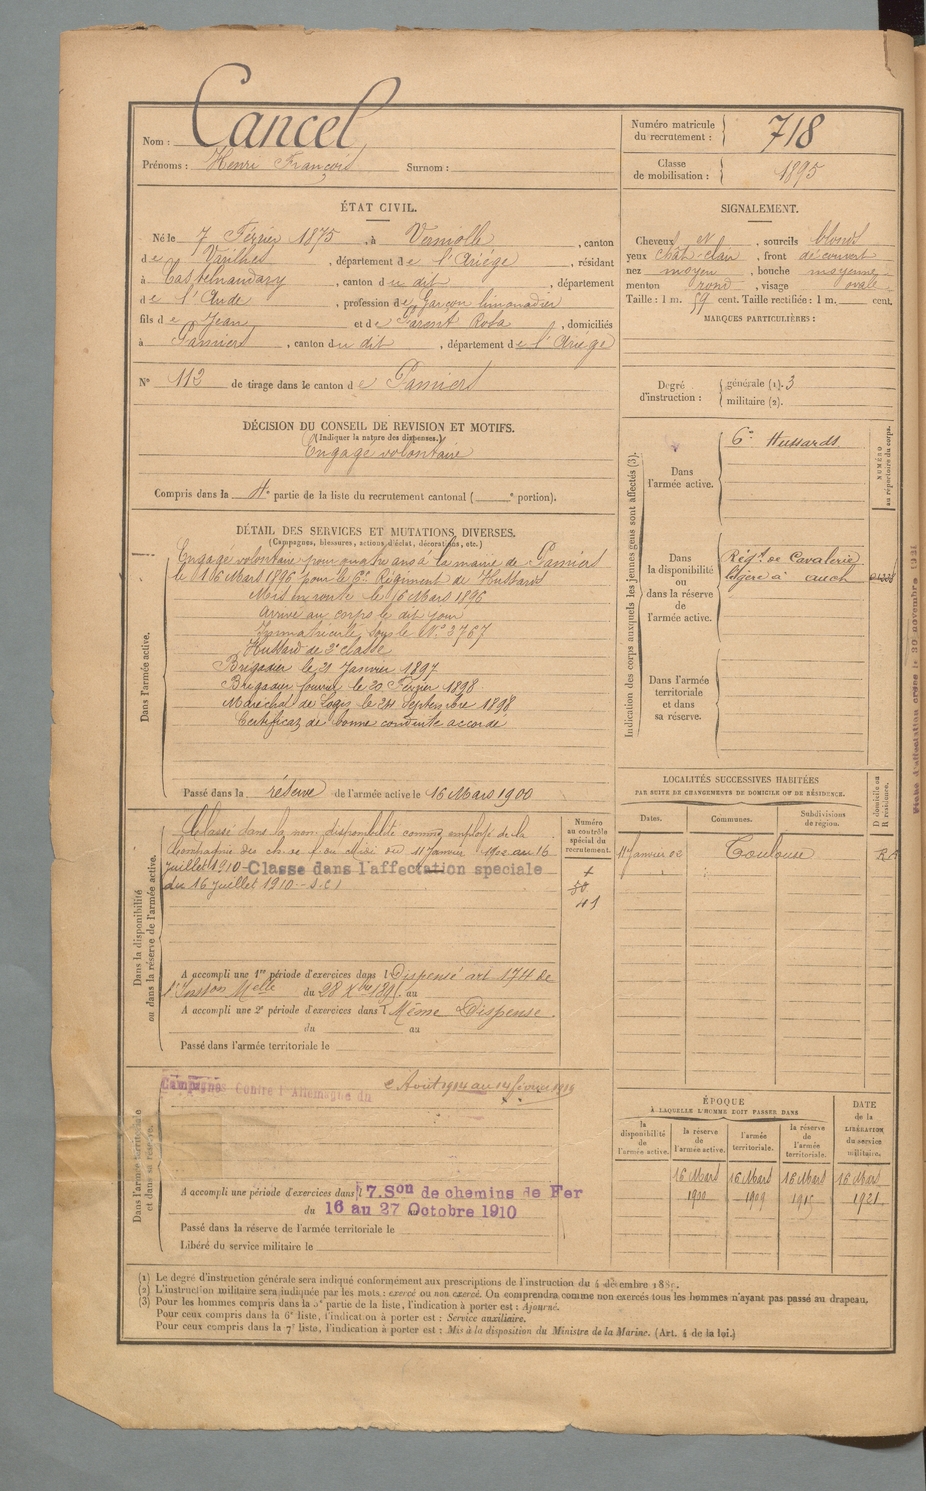 Nom : Cancel
Prénoms : Henri François Surnom :
Numéro matricule du recrutement : 718
Classe de mobilisation : 1895
ÉTAT CIVIL.
Né le 7 Février 1875, à Vernolle, canton
de Varilhes, département de l'Ariège, résidant
à Castelnaudary, canton du dit, département
de l'Aude, profession de Garçon limonadier
fils de Jean et de Parent Rosa, domiciliés
à Pamiers, canton du dit, département de l'Ariège
N° 113 de tirage dans le canton de Pamiers
SIGNALEMENT.
Cheveux et, sourcils blonds
yeux chât clair, front découvert
nez moyen, bouche moyenne
menton rond, visage ovale.
Taille : 1 m. 59 cent. Taille rectifiée : 1 m. cent.
MARQUES PARTICULIÈRES :
Degré d'instruction : générale (1). 3
militaire (2).
DÉCISION DU CONSEIL DE REVISION ET MOTIFS.
(Indiquer la nature des dispenses.)
Engagé volontaire
Compris dans la 4e partie de la liste du recrutement cantonal ( e portion).
DÉTAIL DES SERVICES ET MUTATIONS DIVERSES.
(Campagnes, blessures, actions d'éclat, décorations, etc.)
Dans l'armée active.
Engagé volontaire pour quatre ans à la mairie de Pamiers
le 16 Mars 1896 pour le 6e Régiment de Hussards
Mis en route le 16 Mars 1896
Arrivé au corps le dit jour
Immatriculé sous le N° 3767
Hussard de 2e classe
Brigadier le 21 Janvier 1897
Brigadier fourrier le 20 Février 1898
Maréchal des Logis le 24 Septembre 1898
Certificat de bonne conduite accordé
Passé dans la réserve de l'armée active le 16 Mars 1900
Indication des corps auxquels les jeunes gens sont affectés (3).
NUMÉRO au répertoire du corps.
Dans l'armée active.
6e Hussards
Dans la disponibilité ou dans la réserve de l'armée active.
Régt de Cavalerie
légère à Auch
Dans l'armée territoriale et dans sa réserve.
Dans la disponibilité ou dans la réserve de l'armée active.
Classé dans la non disponibilité comme employé de la
Compagnie des ch. de f. du Midi du 11 Janvier 1902 au 16
Juillet 1910 - Classe dans l'affectation speciale
du 16 juillet 1910 - S.C1
Numéro au contrôle spécial du recrutement.
41
A accompli une 1re période d'exercices dans l Dispensé art 174 de
l'Inston Melle du 28 Xbre 1895 au
A accompli une 2e période d'exercices dans l Même Dispense
du au
Passé dans l'armée territoriale le
LOCALITÉS SUCCESSIVES HABITÉES
PAR SUITE DE CHANGEMENTS DE DOMICILE OU DE RÉSIDENCE.
Dates. Communes. Subdivisions de région. D domicile ou R résidence.
11 Janvier 02 Toulouse R
Fiche d'affectation créée le 30 novembre 1921
Dans l'armée territoriale et dans sa réserve.
Campagnes Contre l'Allemagne du 2 Août 1914 au 14 février 1919
A accompli une période d'exercices dans l 7.Son de chemins de Fer
du 16 au 27 Octobre 1910
Passé dans la réserve de l'armée territoriale le
Libéré du service militaire le
ÉPOQUE
À LAQUELLE L'HOMME DOIT PASSER DANS
la disponibilité de l'armée active. la réserve de l'armée active. l'armée territoriale. la réserve de l'armée territoriale.
DATE de la LIBÉRATION du service militaire.
16 Mars 1900 16 Mars 1909 16 Mars 1915 16 Mars 1921
(1) Le degré d'instruction générale sera indiqué conformément aux prescriptions de l'instruction du 4 décembre 1889.
(2) L'instruction militaire sera indiquée par les mots : exercé ou non exercé. On comprendra comme non exercés tous les hommes n'ayant pas passé au drapeau.
(3) Pour les hommes compris dans la 5e partie de la liste, l'indication à porter est : Ajourné.
Pour ceux compris dans la 6e liste, l'indication à porter est : Service auxiliaire.
Pour ceux compris dans la 7e liste, l'indication à porter est : Mis à la disposition du Ministre de la Marine. (Art. 4 de la loi.)